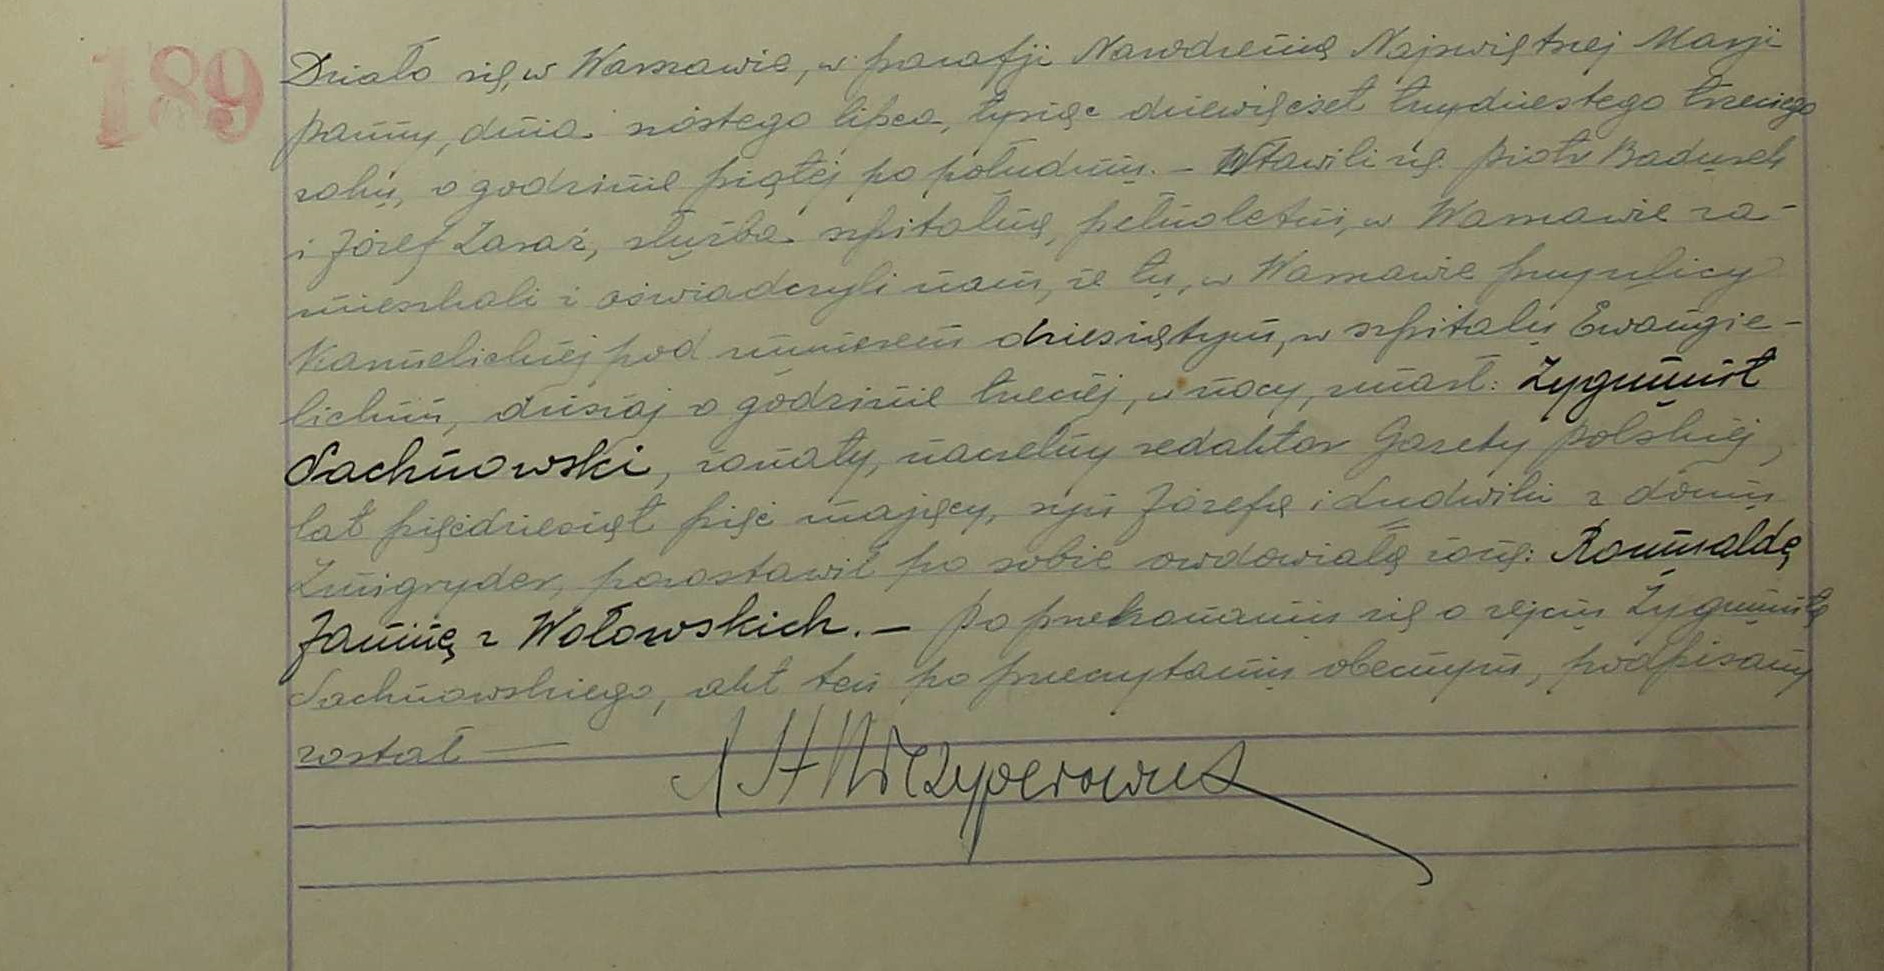 189
Działo się, w Warszawie, w parafji Narodzenia Najświętszej Marji
Panny, dnia szóstego lipca, tysiąc dziewięćset trzydziestego trzeciego
roku, o godzinie piątej po południu. — Stawili się Piotr Baduszek
i Józef Zaraś, służba szpitalna, pełnoletni, w Warszawie za-
mieszkali i oświadczyli nam, że tu, w Warszawie przy ulicy
Karmelickiej pod numerem dziesiątym, w szpitalu Ewangie-
lickim, dzisiaj o godzinie trzeciej, w nocy, zmarł: Zygmunt
Sachnowski, żonaty, naczelny redaktor Gazety Polskiej,
lat pięćdziesiąt pięć mający, syn Józefa i Ludwiki z domu
Żmigryder, pozostawił po sobie owdowiałą żonę: Romualdę
Janinę z Wołowskich. — Po przekonaniu się o zejściu Zygmunta
Sachnowskiego, akt ten po przeczytaniu obecnym, podpisany
został —